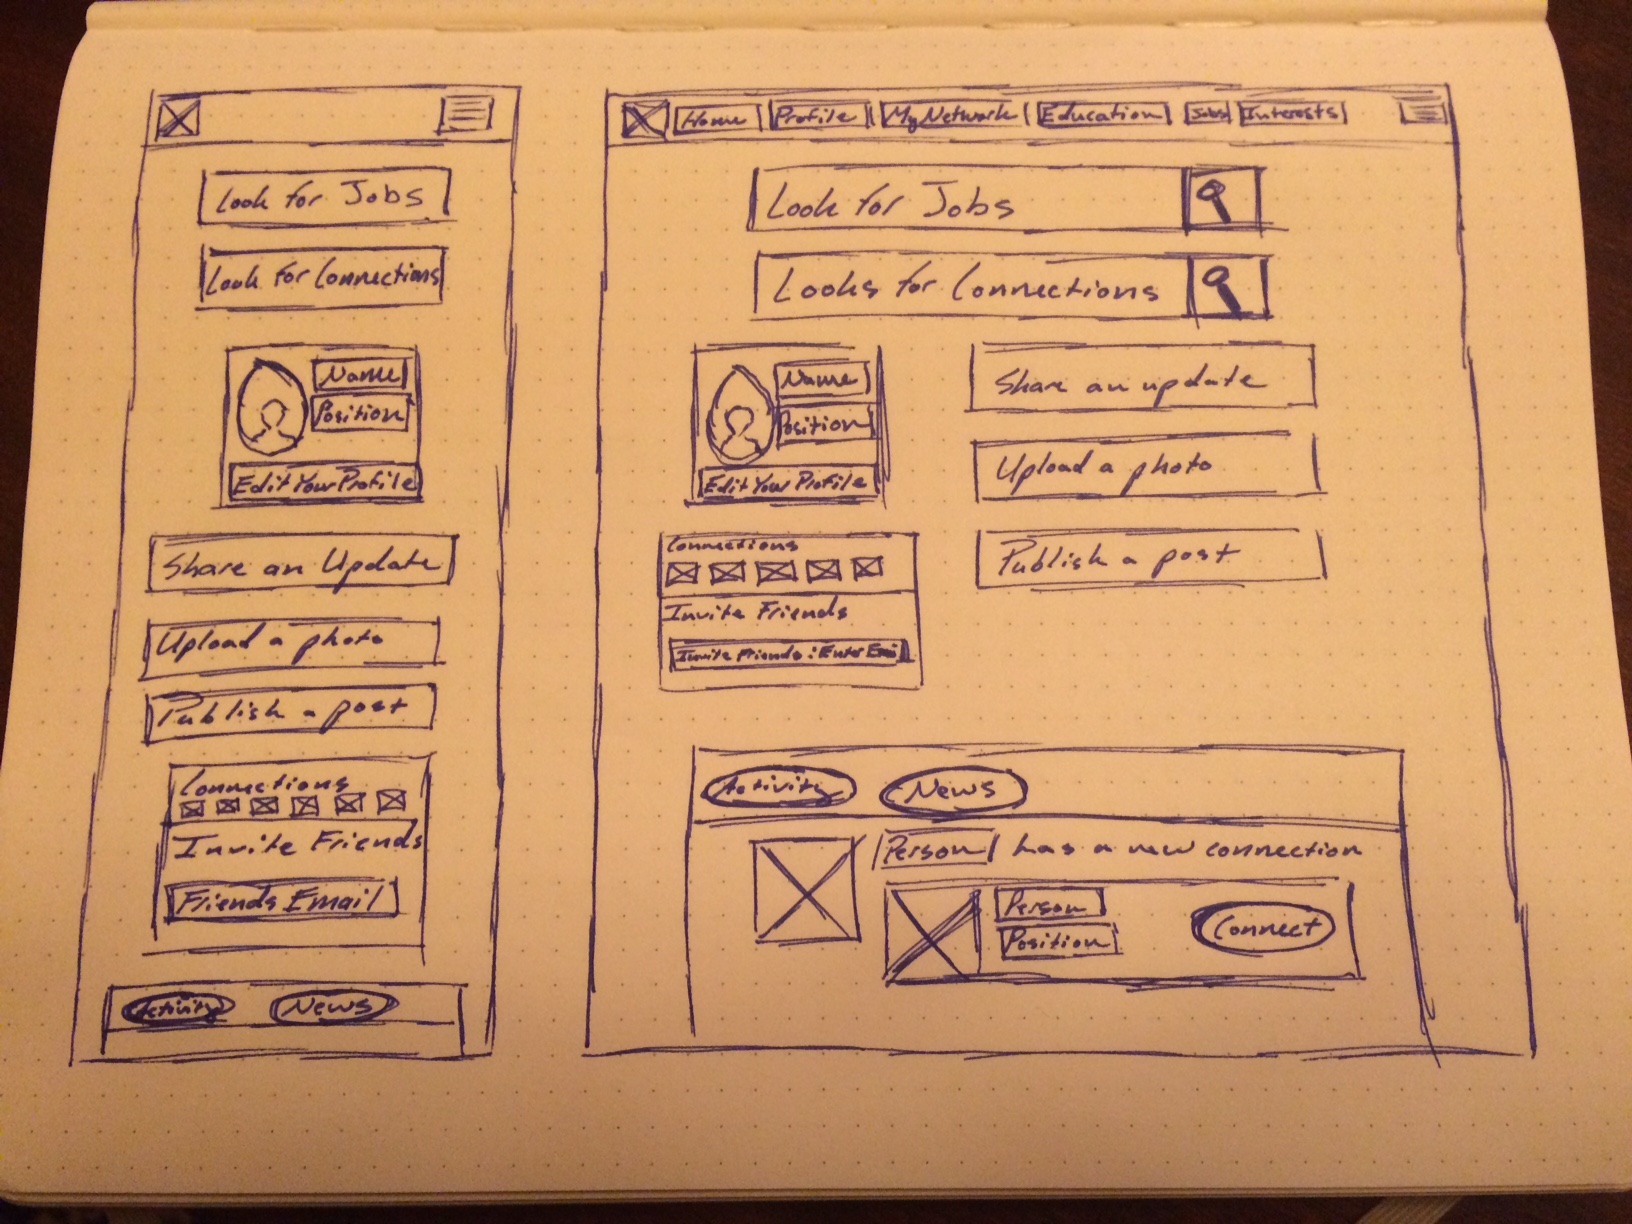 Look for Jobs
Look for Connections
Name
Position
Edit Your Profile
Share an Update
Upload a photo
Publish a post
Connections
Invite Friends
Friends Email
Activity
News
Home
Profile
My Network
Education
Jobs
Interests
Look for Jobs
Looks for Connections
Name
Position
Edit Your Profile
Share an update
Upload a photo
Publish a post
Connections
Invite Friends
Invite Friends: Enter Email
Activity
News
Person has a new connection
Person
Position
Connect